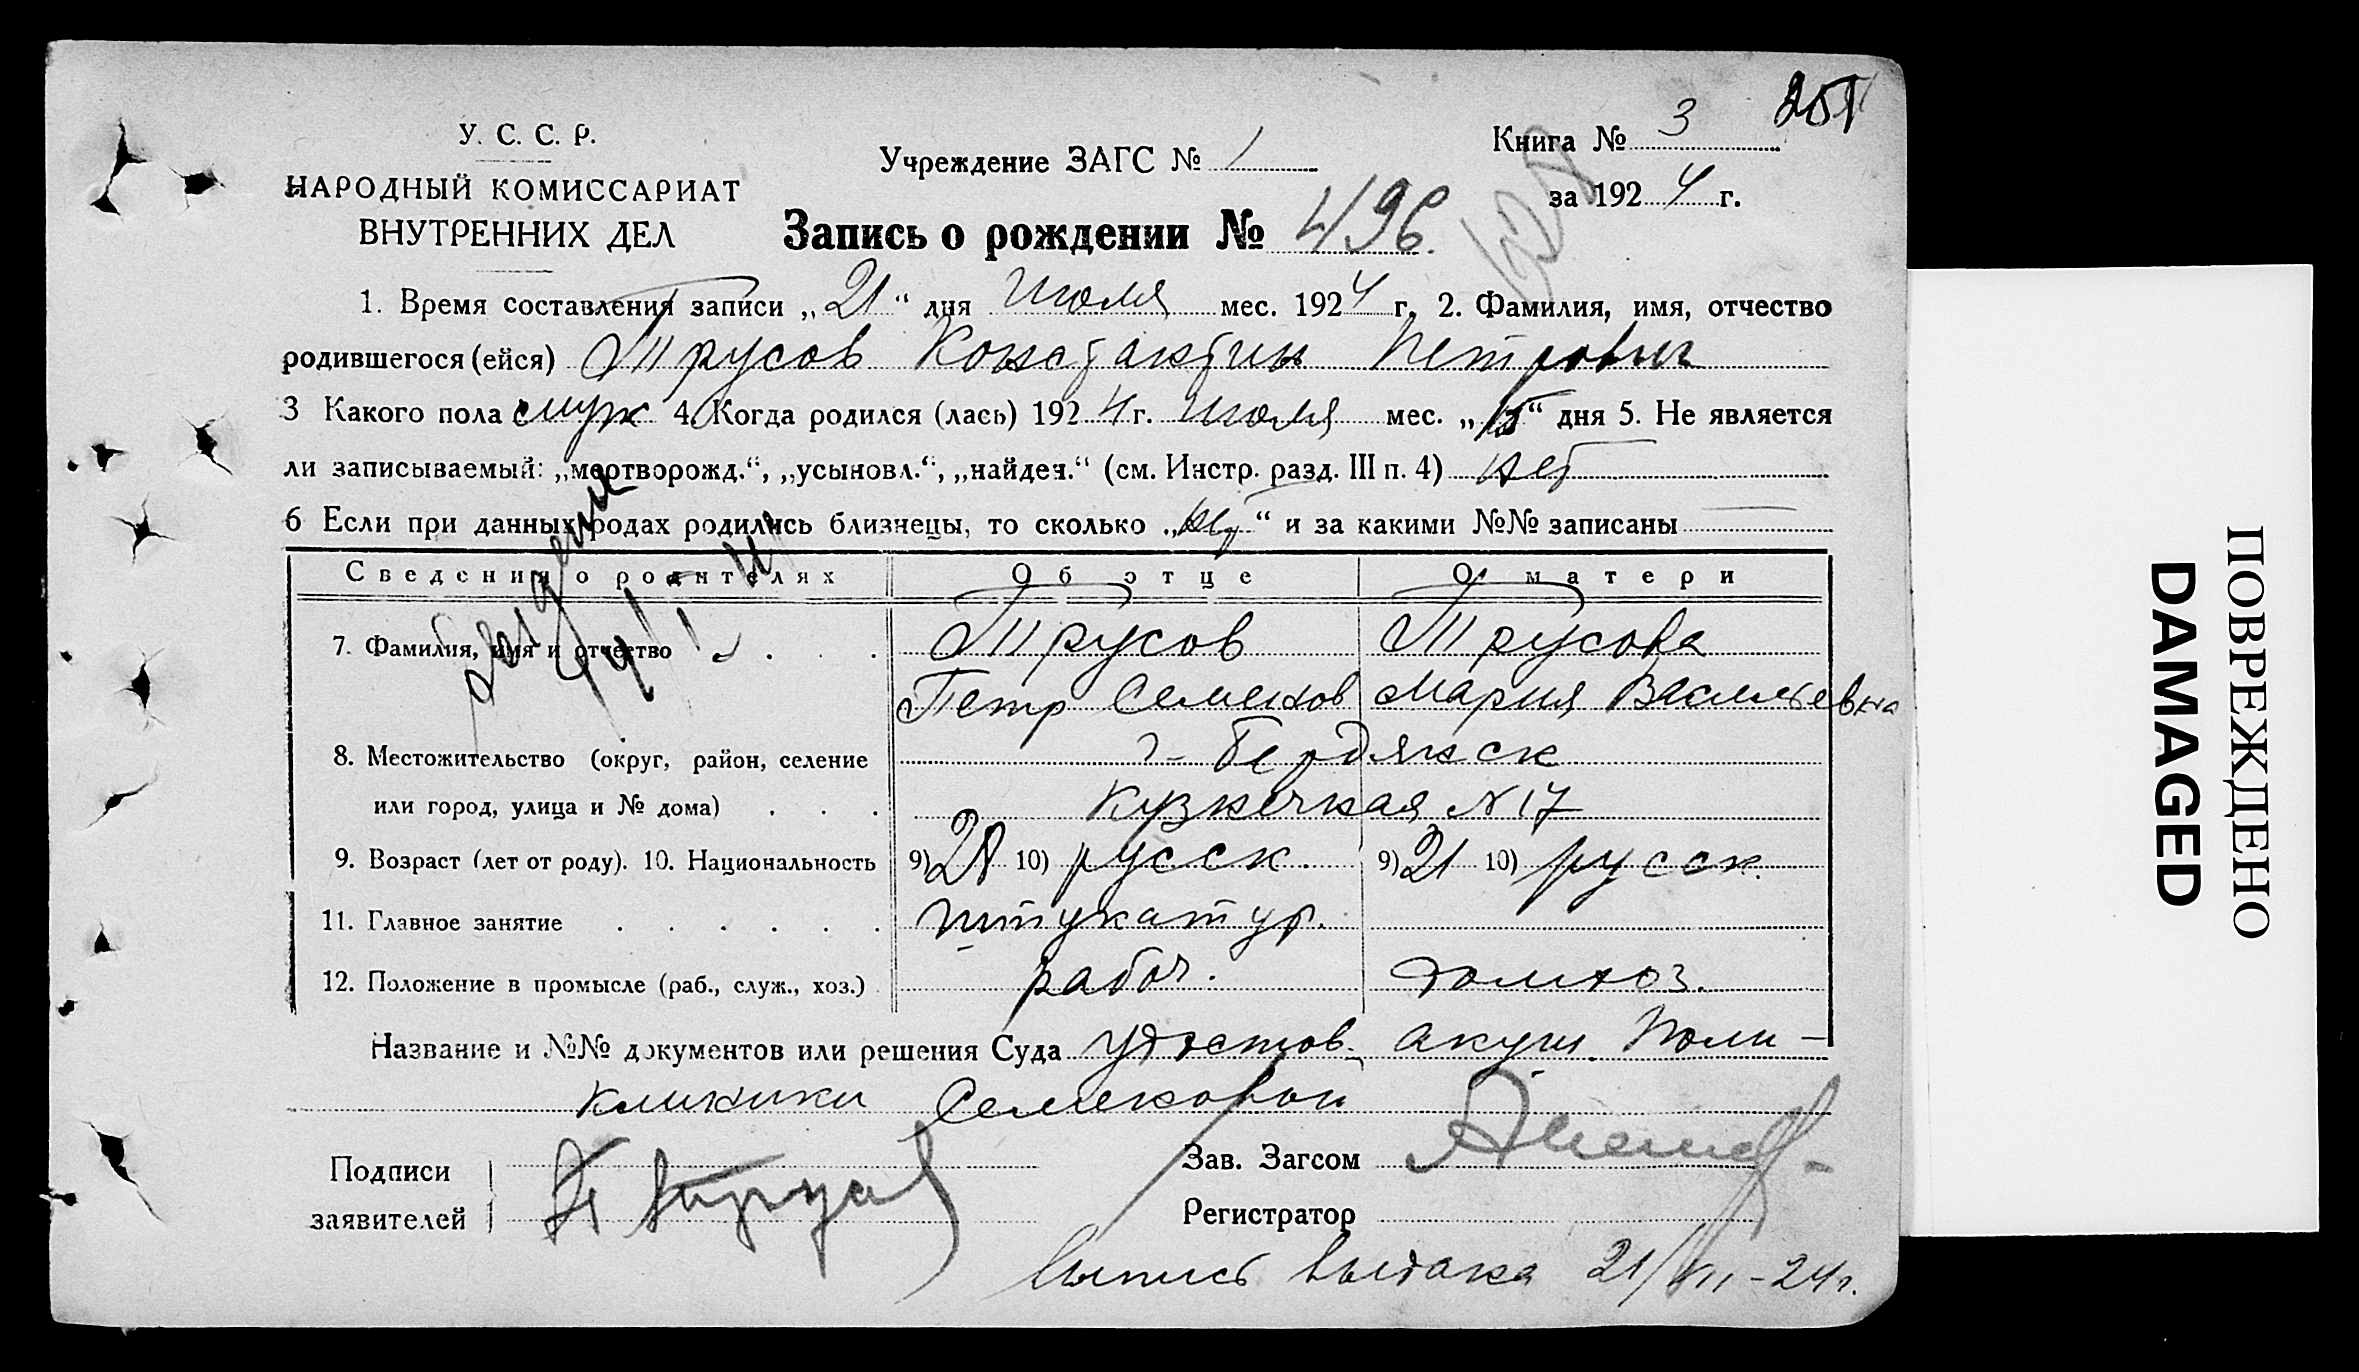 У. С. С. Р.
НАРОДНЫЙ КОМИССАРИАТ
ВНУТРЕННИХ ДЕЛ
Учреждение ЗАГС № 1
Книга № 3
за 1924 г.
Запись о рождении № 496.
1. Время составления записи „21“ дня Июля мес. 1924 г. 2. Фамилия, имя, отчество
родившегося (ейся) Трусов Константин Петрович
3 Какого пола муж 4. Когда родился (лась) 1924 г. июля мес. „15“ дня 5. Не является
ли записываемый: „мертворожд.“, „усыновл.“, „найден.“ (см. Инстр. разд. III п. 4) нет
6 Если при данных родах родились близнецы, то сколько „нет“ и за какими №№ записаны —
Сведения о родителях Об отце О матери
7. Фамилия, имя и отчество Трусов Трусова
Петр Семенов Мария Васильевна
8. Местожительство (округ, район, селение г. Бердянск
или город, улица и № дома) Кузнечная, N 17
9. Возраст (лет от роду). 10. Национальность 9) 28 10) русск. 9) 21 10) русск.
11. Главное занятие штукатур.
12. Положение в промысле (раб., служ., хоз.) рабоч. домхоз.
Название и №№ документов или решения Суда удостов. акуш. Поли-
клиники Семеновой
Подписи
заявителей
Зав. Загсом
Регистратор
Выпись выдана 21/VII-24г.
ПОВРЕЖДЕНО
DAMAGED